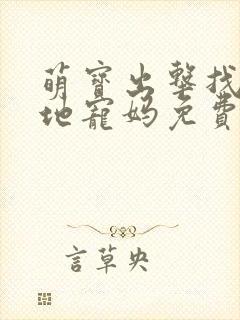 萌寶出擊找
地寵媽免費
言草央